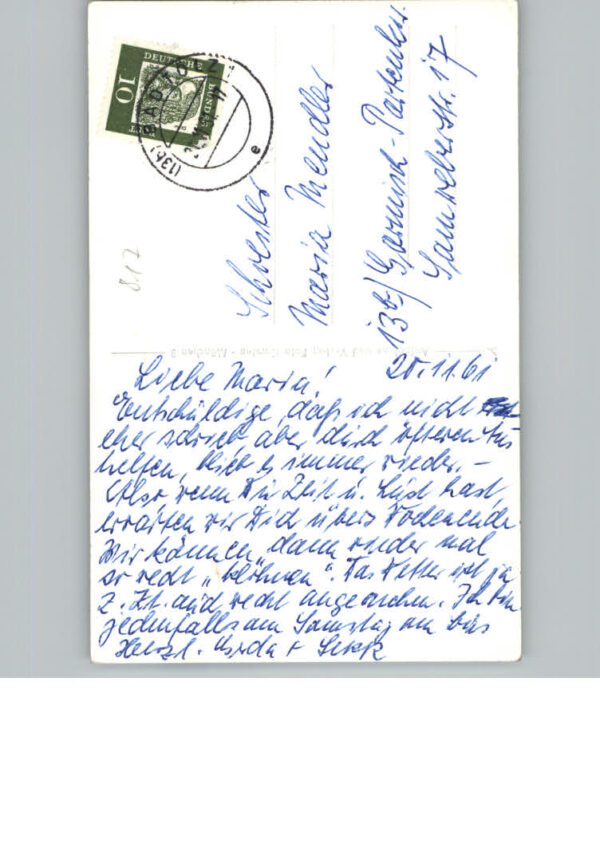 DEUTSCHE
BUNDES
POST
10
(13b) BAD TÖLZ
e
Schwester
Maria Mendler
13b) Garmisch-Partenkir.
17
817
und Verlag Foto - München 9
20.11.61
Liebe Maria!
Entschuldige, daß ich nicht
eher schrieb, aber durch öfteren Aus
helfen, blieb es immer wieder. -
Also wenn Du Zeit u. Lust hast,
erwarten wir Dich übers Wochenende.
Wir können dann wieder mal
so recht „ ". Das Wetter ist ja
z. Zt. auch recht angenehm. Ich bin
jedenfalls am Samstag am Bus
Herzl.